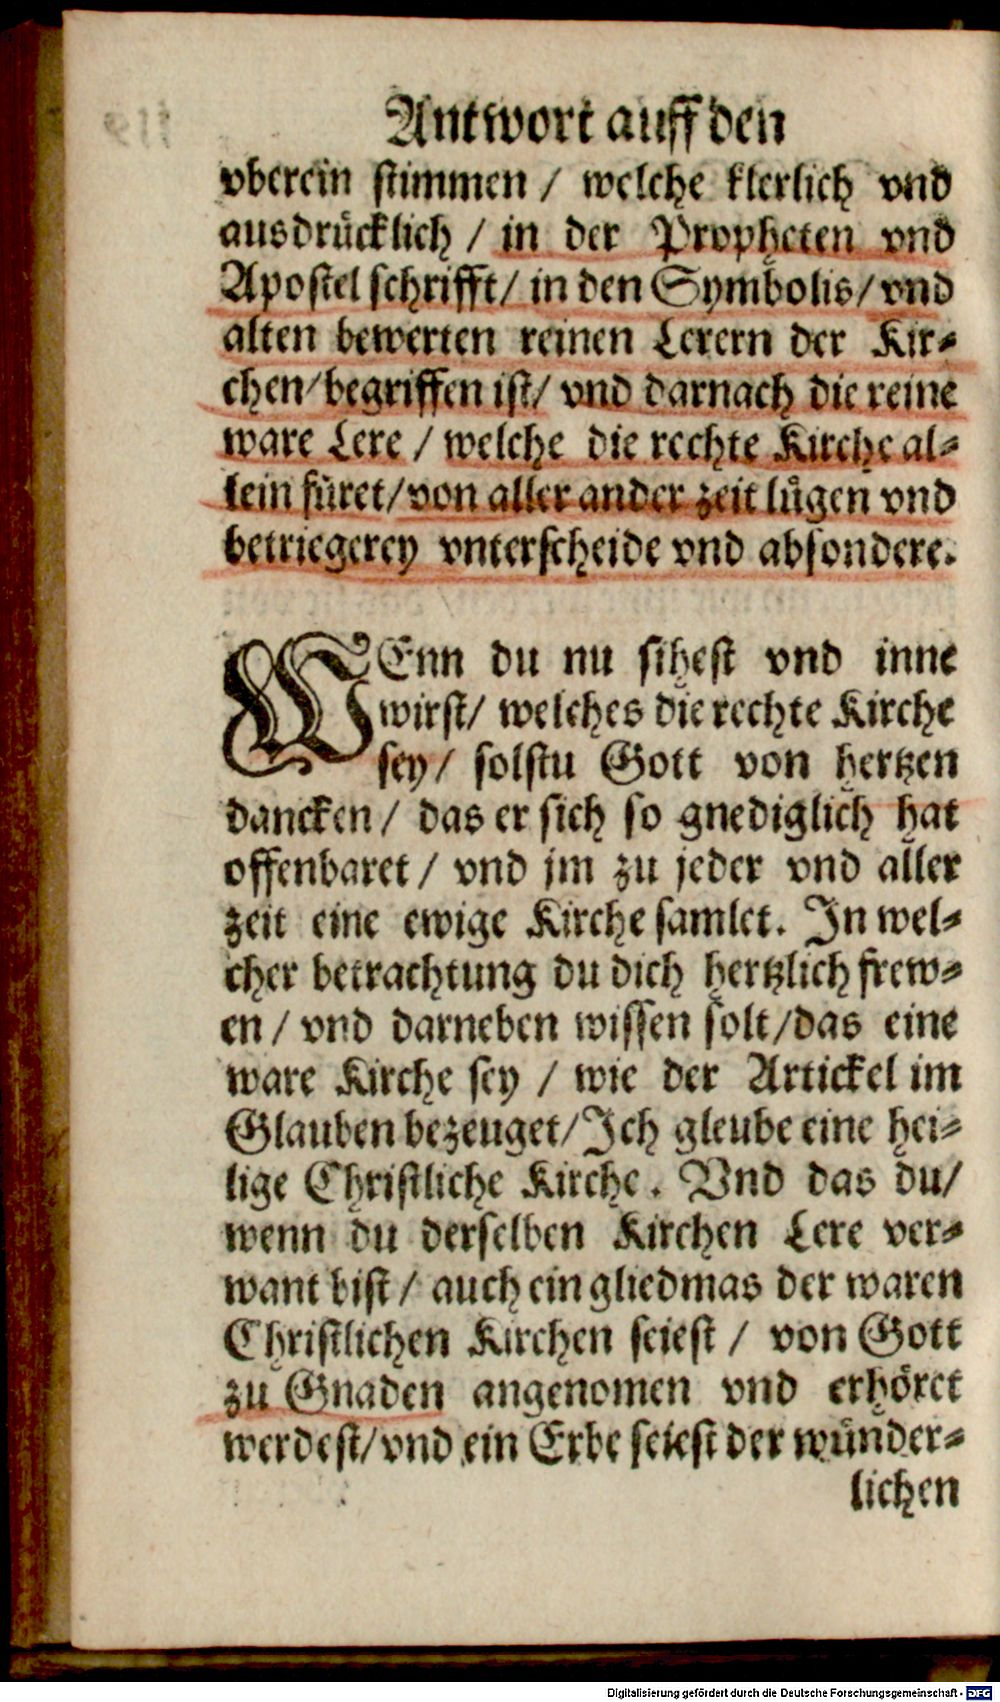 Antwort auff den
vberein stimmen / welche klerlich vnd
ausdrücklich / in der Propheten vnd
Apostel schrifft / in den Symbolis / vnd
alten bewerten reinen Lerern der Kir-
chen / begriffen ist / vnd darnach die reine
ware Lere / welche die rechte Kirche al-
lein füret / von aller ander zeit lügen vnd
betriegerey vnterscheide vnd absondere.
WEnn du nu sihest vnd inne
wirst / welches die rechte Kirche
sey / solstu Gott von hertzen
dancken / das er sich so gnediglich hat
offenbaret / vnd jm zu jeder vnd aller
zeit eine ewige Kirche samlet. In wel-
cher betrachtung du dich hertzlich frew-
en / vnd darneben wissen solt / das eine
ware Kirche sey / wie der Artickel im
Glauben bezeuget / Ich gleube eine hei-
lige Christliche Kirche. Vnd das du /
wenn du derselben Kirchen Lere ver-
want bist / auch ein gliedmas der waren
Christlichen Kirchen seiest / von Gott
zu Gnaden angenomen vnd erhöret
werdest / vnd ein Erbe seiest der wünder-
lichen
Digitalisierung gefördert durch die Deutsche Forschungsgemeinschaft - DFG